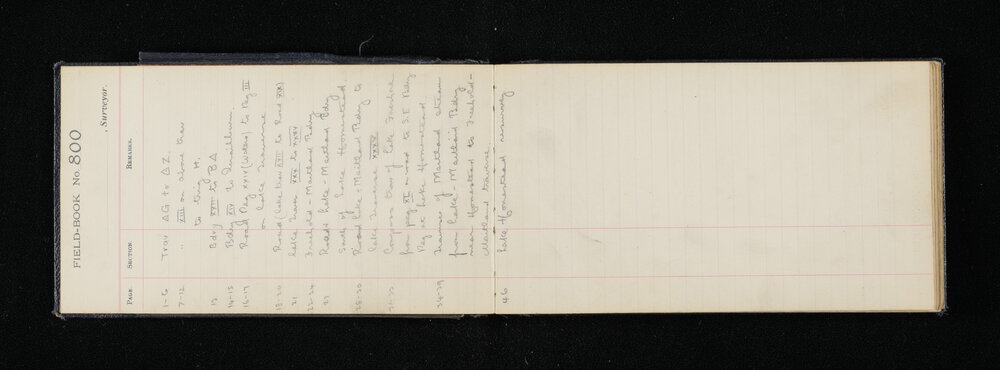 FIELD-BOOK No. 800
, Surveyor.
PAGE. SECTION. REMARKS.
1-6 Trav ΔG to ΔZ.
7-12 " XIII on above trav
to trig H.
13 Bdry XVII to BΔ
14-15 Bdry XIV to
16-17 Road Peg XXIV (Water) to Peg III
on Lake traverse
18-20 Road (Lake trav XVI to Road XXI)
21 Lake trav XXX to XXXV
22-24 Freehold - Maitland Bdry
27 Road Lake - Maitland Bdry
South of Lake Homestead.
28-30 Road Lake - Maitland Bdry to
Lake traverse XXXX
31-33 Compass trav of Lake Freehold
from peg XL on road to S.E. Bdry
Peg at Lake Homestead.
34-39 Traverse of Maitland stream
from Lake - Maitland Bdry
near Homestead to Freehold -
Maitland traverse.
46 Lake Homestead resurvey